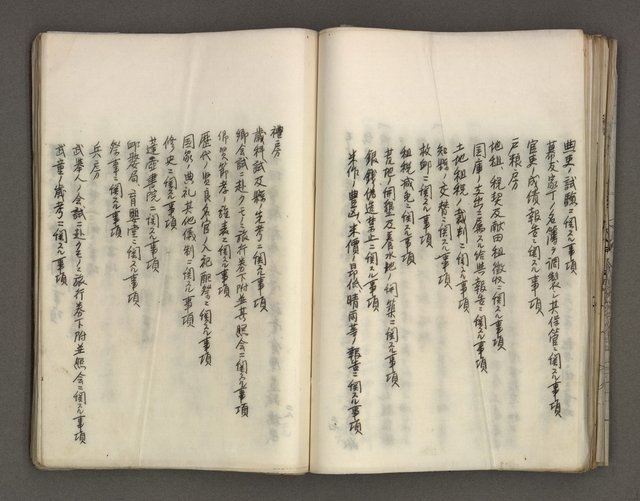 典吏ノ試驗ニ関スル事項
幕友家丁ノ名簿ヲ調製シ其保管ニ関スル事項
官吏ノ成績報告ニ関スル事項
戸粮房
地租税契及献田租徴收ニ関スル事項
国庫ノ支出ニ属スル給與報告ニ関スル事項
土地租税ノ裁判ニ関スル事項
知縣ノ交替ニ関スル事項
救卹ニ関スル事項
租税減免ニ関スル事項
荒地ノ開墾及養水地ノ開築ニ関スル事項
銀銭偽造禁止ニ関スル事項
米作ノ豊凶、米價ノ昂低、晴雨等ノ報告ニ関スル事項
禮房
歳科試及縣先考ニ関スル事項
鄉会試ニ赴クモノヽ旅行券下附並其照会ニ関スル事項
節孝ノ旌表ニ関スル事項
歴代ノ賢良名官ノ入祀配祭ニ関スル事項
国家ノ典礼其他儀制ニ関スル事項
修史ニ関スル事項
蓬壺書院ニ関スル事項
卹嫠局、育嬰堂ニ関スル事項
祭事ニ関スル事項
兵房
武舉人ノ会試ニ赴クモノヽ旅行券下附並照会ニ関スル事項
武童ノ歳考ニ関スル事項